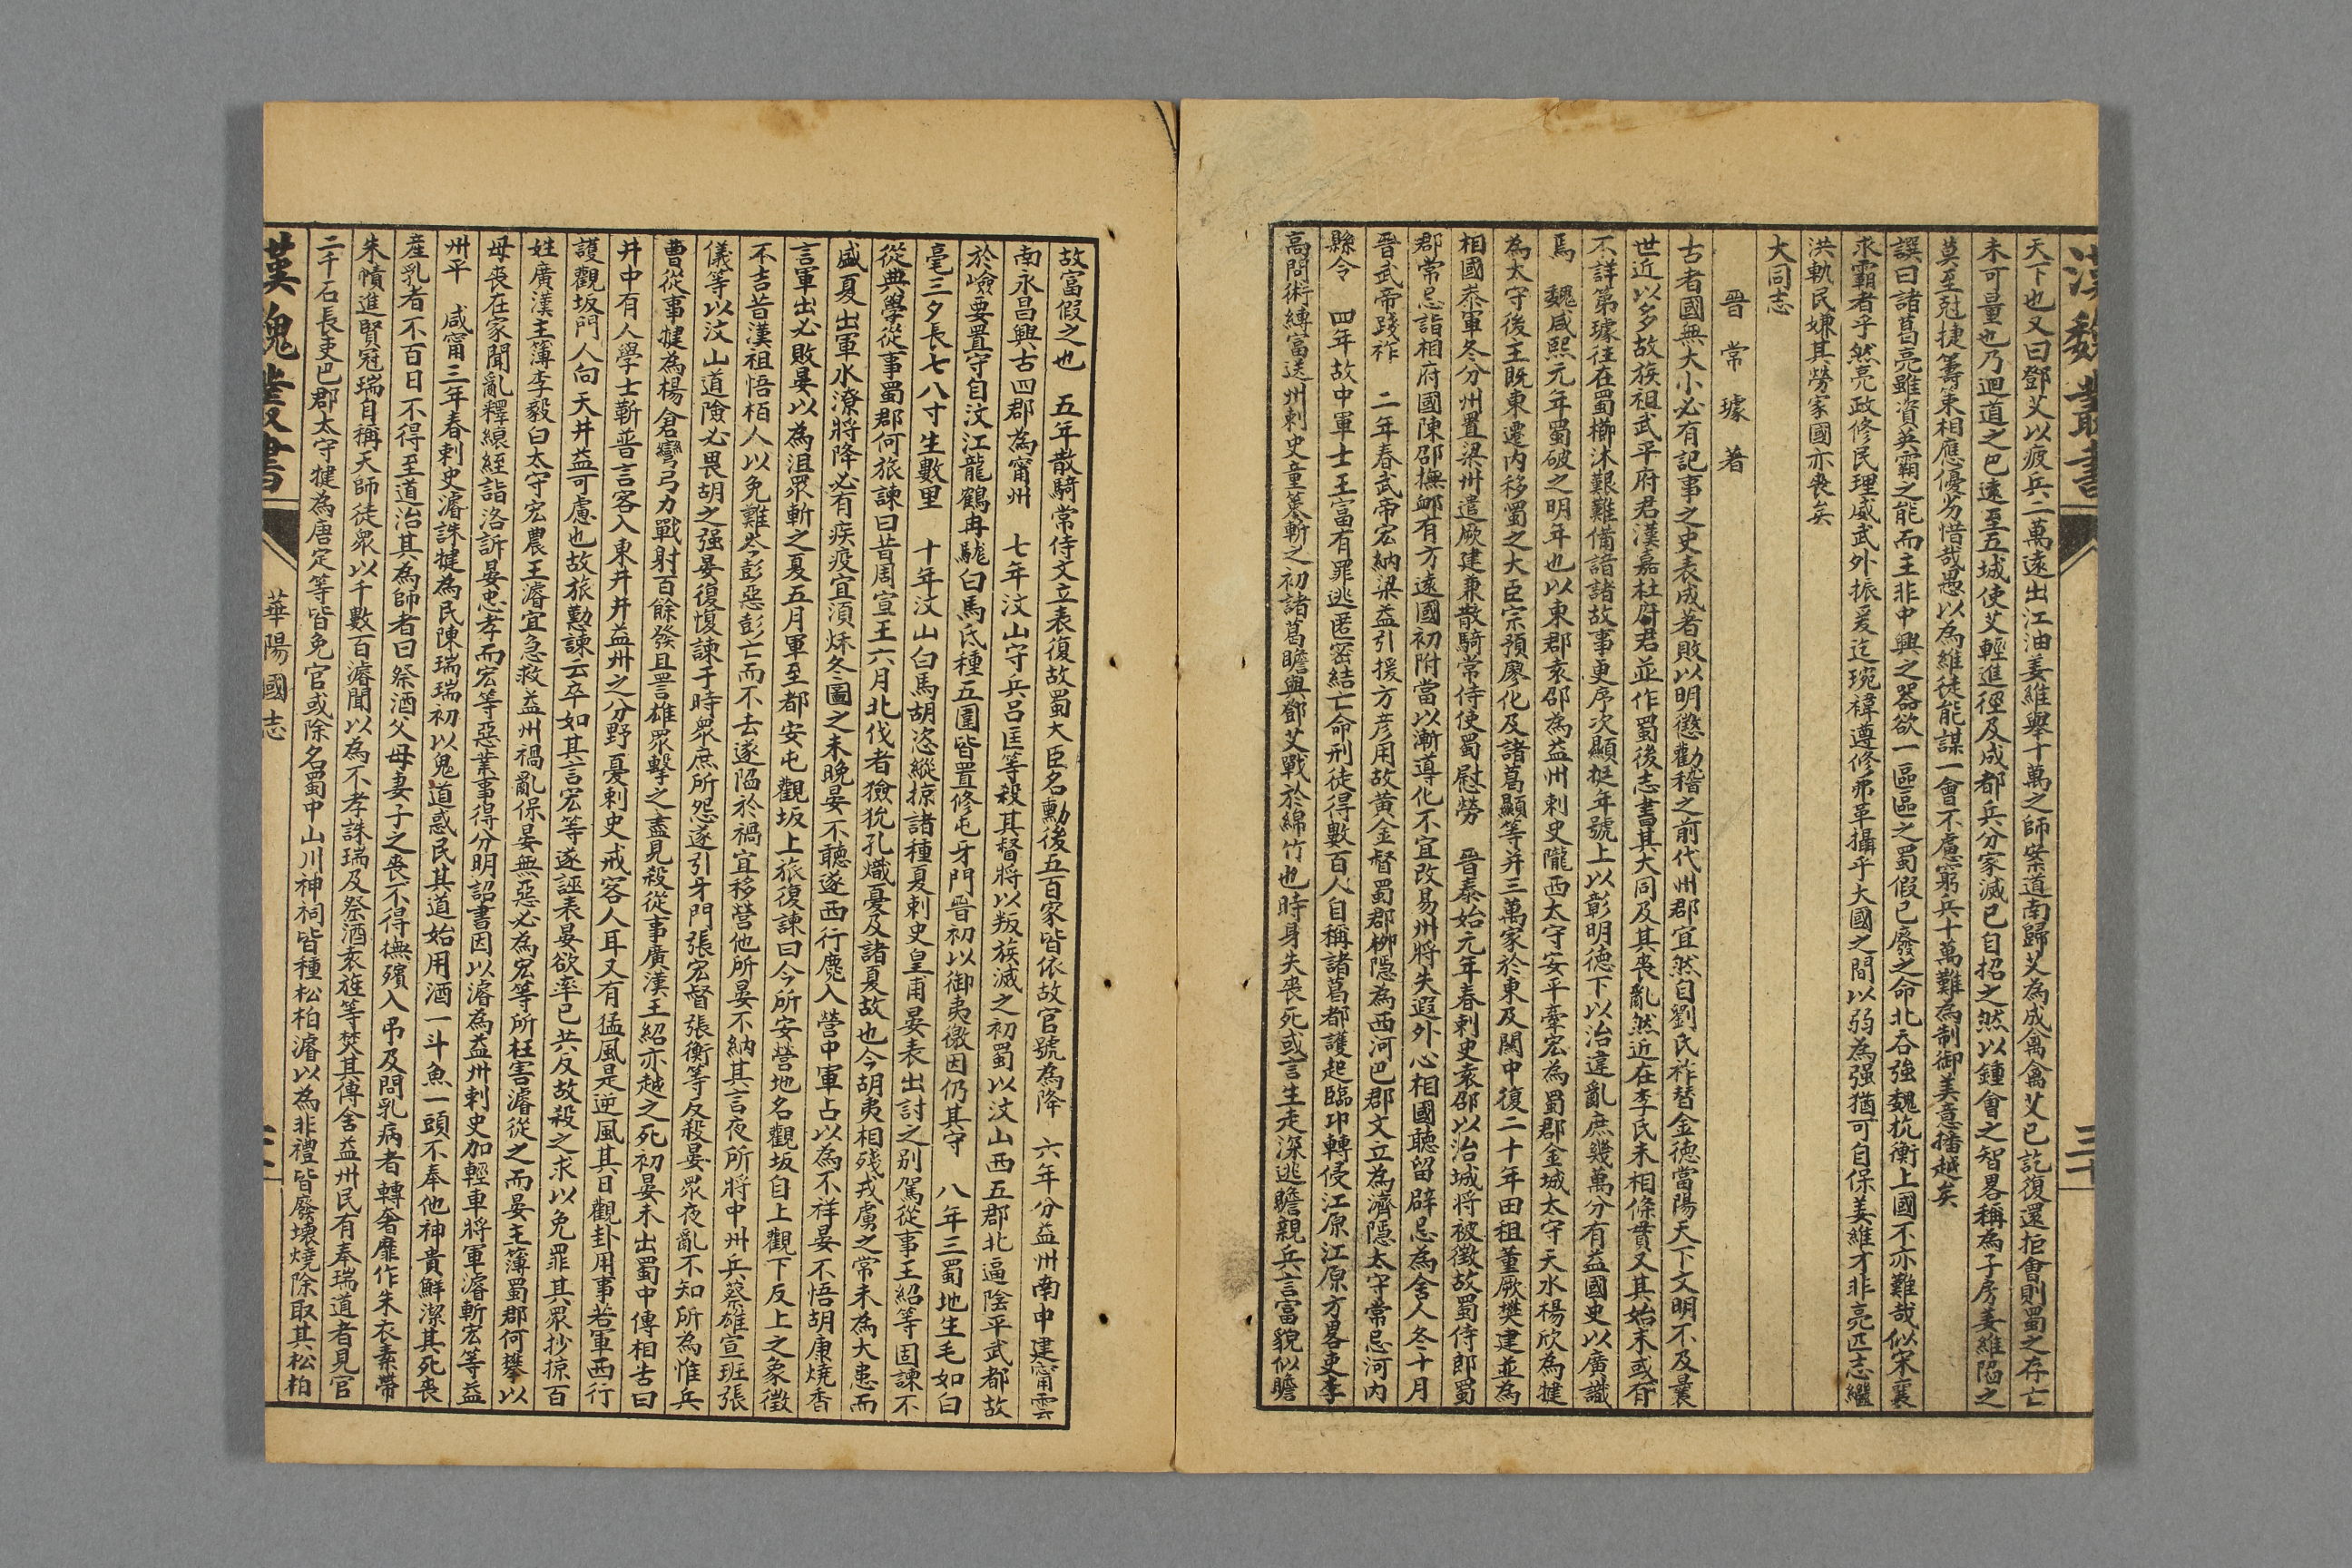 漢魏叢書
三十
天下也又曰鄧艾以疲兵二萬遠出江油姜維舉十萬之師案道南歸艾為成禽禽艾已訖復還拒會則蜀之存亡
未可量也乃迴道之巴遠至五城使艾輕進徑及成都兵分家滅已自招之然以鍾會之智畧稱為子房姜維陷之
莫至尅捷籌筭相應優劣惜哉愚以為維徒能謀一會不慮窮兵十萬難為制御美意播越矣
譔曰諸葛亮雖資英霸之能而主非中興之器欲一區區之蜀假已廢之命北吞強魏抗衡上國不亦難哉似宋襄
求霸者乎然亮政修民理威武外振爰迄琬褘遵修弗革攝乎大國之間以弱為强猶可自保姜維才非亮匹志繼
洪軌民嫌其勞家國亦喪矣
大同志
晋常璩著
古者國無大小必有記事之史表成著敗以明懲勸稽之前代州郡宜然自劉氏祚替金徳當陽天下文明不及曩
世近以多故族祖武平府君漢嘉杜府君並作蜀後志書其大同及其喪亂然近在李氏未相條貫又其始末或有
不詳第璩往在蜀櫛沐艱難備諳諸故事更序次顯挺年號上以彰明徳下以治違亂庶幾萬分有益國史以廣識
焉　魏咸熙元年蜀破之明年也以東郡袁邵為益州刺史隴西太守安平牽宏為蜀郡金城太守天水楊欣為犍
為太守後主既東遷内移蜀之大臣宗預廖化及諸葛顯等并三萬家於東及關中復二十年田租董厥樊建並為
相國參軍冬分州置梁州遣厥建兼散騎常侍使蜀慰勞　晋泰始元年春刺史袁邵以治城将被徴故蜀侍郎蜀
郡常忌詣相府國陳邵撫卹有方遠國初附當以漸導化不宜改易州將失遐外心相國聽留辟忌為舍人冬十月
晋武帝踐祚　二年春武帝宏納梁益引援方彦用故黃金督蜀郡栁隱為西河巴郡文立為濟隱太守常忌河内
縣令　四年故中軍士王富有罪逃匿密結亡命刑徒得數百人自稱諸葛都護起臨卭轉侵江原江原方畧吏李
高問術縛富送州刺史童䇿斬之初諸葛瞻與鄧艾戰於綿竹也時身失喪死或言生走深逃瞻親兵言富貌似瞻
故富假之也　五年散騎常侍文立表復故蜀大臣名勳後五百家皆依故官號為降　六年分益州南中建甯雲
南永昌興古四郡為甯州　七年汶山守兵吕匡等殺其督將以叛族滅之初蜀以汶山西五郡北逼陰平武都故
於嶮要置守自汶江龍鶴冉駹白馬氏種五圍皆置修屯牙門晋初以御夷徼因仍其守　八年三蜀地生毛如白
毫三夕長七八寸生數里　十年汶山白馬胡恣縱掠諸種夏刺史皇甫晏表出討之别駕從事王紹等固諫不
從典學從事蜀郡何旅諫曰昔周宣王六月北伐者獫狁孔熾憂及諸夏故也今胡夷相殘戎虜之常未為大患而
盛夏出軍水潦將降必有疾疫宜須秌冬圖之未晚晏不聽遂西行麂入營中軍占以為不祥晏不悟胡康燒香
言軍出必敗晏以為沮眾斬之夏五月軍至都安屯觀坂上旅復諫曰今所安營地名觀坂自上觀下反上之象徴
不吉昔漢祖悟栢人以免難岑彭惡彭亡而不去遂陷於禍宜移營他所晏不納其言夜所將中州兵蔡雄宣班張
儀等以汶山道險必畏胡之强晏復愎諫于時眾庶所怨遂引牙門張宏督張衡等反殺晏眾夜亂不知所為惟兵
曹從事犍為楊倉彎弓力戰射百餘發且詈雄眾擊之盡見殺從事廣漢王紹亦越之死初晏未出蜀中傳相告曰
井中有人學士靳普言客入東井井益州之分野憂刺史戒客人耳又有猛風是逆風其日觀卦用事若軍西行
護觀坂門人向天井益可慮也故旅懃諫云卒如其言宏等遂誣表晏欲率已共反故殺之求以免罪其眾抄掠百
姓廣漢主簿李毅白太守宏農王濬宜急救益州禍亂保晏無惡必為宏等所枉害濬從之而晏主簿蜀郡何攀以
母喪在家聞亂釋縗絰詣洛訴晏忠孝而宏等惡業事得分明詔書因以濬為益州刺史加輕車將軍濬斬宏等益
州平　咸甯三年春刺史濬誅犍為民陳瑞瑞初以鬼道惑民其道始用酒一斗魚一頭不奉他神貴鮮潔其死喪
産乳者不百日不得至道治其為師者曰祭酒父母妻子之喪不得撫殯入吊及問乳病者轉奢靡作朱衣素帶
朱幘進賢冠瑞自稱天師徒眾以千數百濬聞以為不孝誅瑞及祭酒袁旌等焚其傳舍益州民有奉瑞道者見官
二千石長吏巴郡太守犍為唐定等皆免官或除名蜀中山川神祠皆種松柏濬以為非禮皆廢壞燒除取其松柏
漢魏叢書
華陽國志